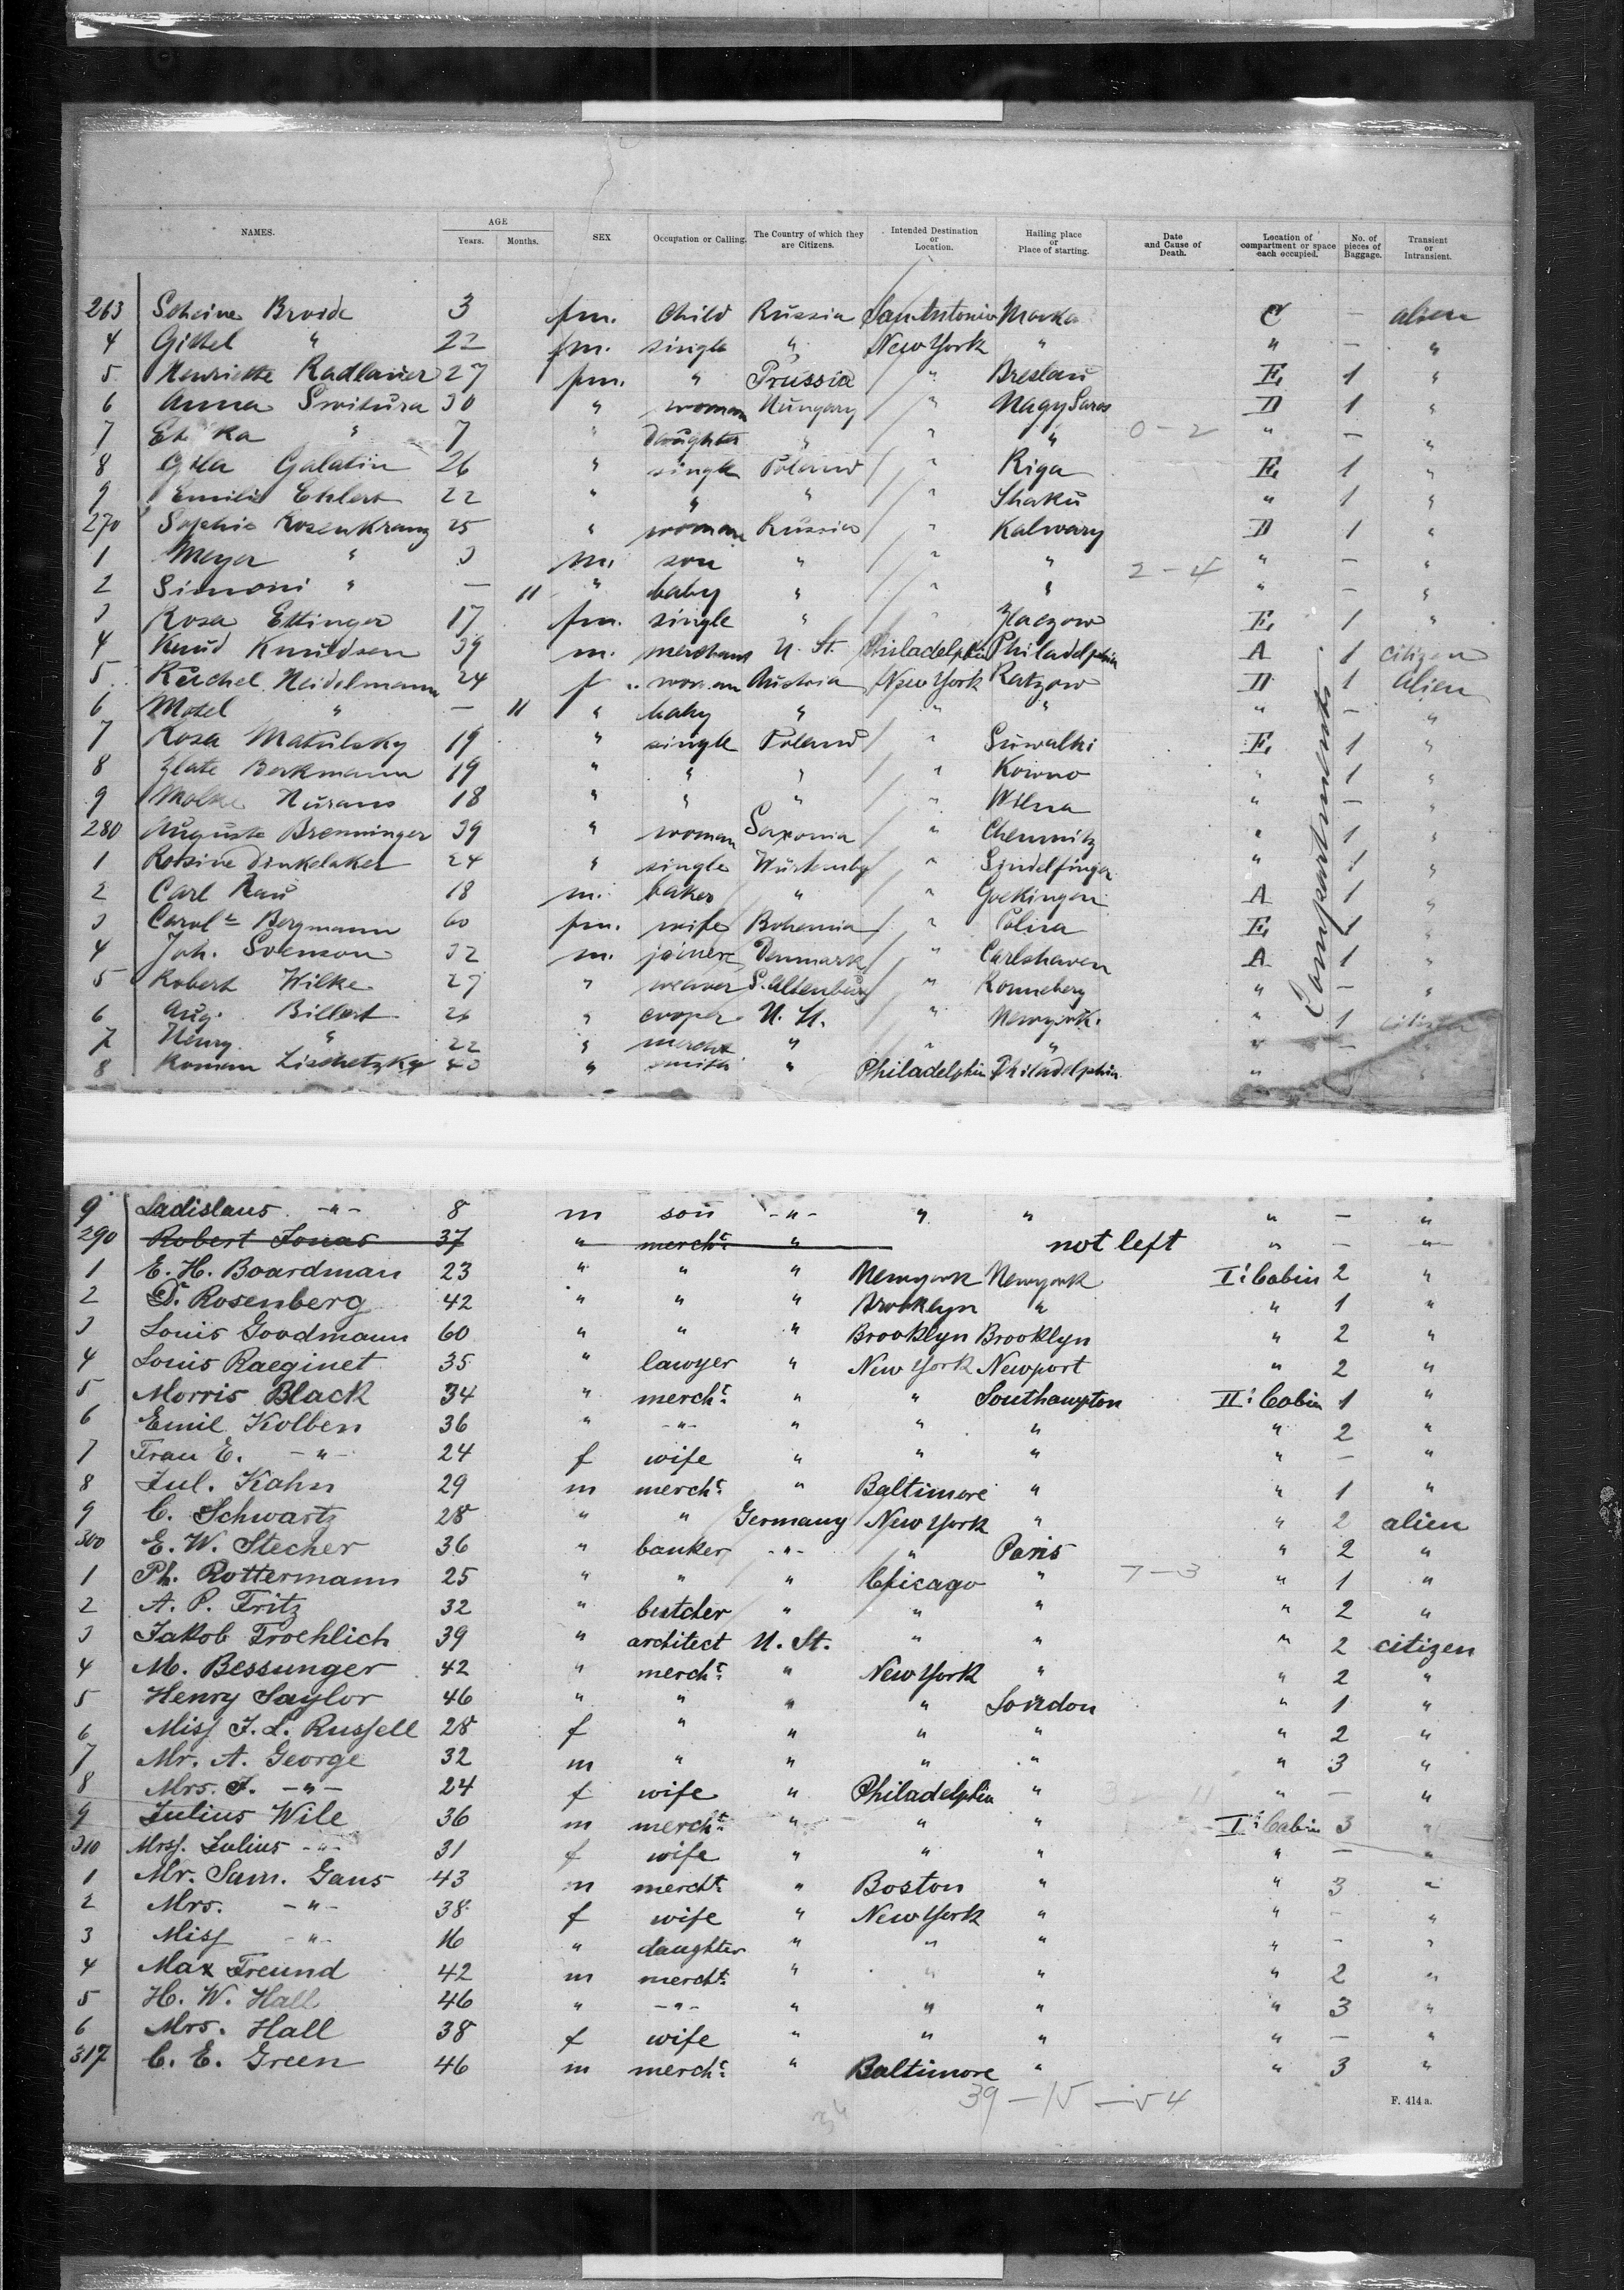 NAMES. AGE Years. Months. SEX Occupation or Calling. The Country of which they are Citizens. Intended Destination or Location. Hailing place or Place of starting. Date and Cause of Death. Location of compartment or space each occupied. No. of pieces of Baggage. Transient or Intransient.
263 Broide 3 fm. Child Russia San Antonio C — alien
4 Gittel " 22 fm. single " New York " " — "
5 Henriette Radlauer 27 fm. " Prussia " Breslau E. 1 "
6 Anna 30 " woman Hungary " Nagy Saros D 1 "
7 " 7 " daughter " " " 0 – 2 " — "
8 Galatin 26 " single Poland " Riga E. 1 "
9 Emilie Ehlert 22 " " " " Shaku " 1 "
270 Sophie Rosenkranz 25 " woman Russia " Kalwary D 1 "
1 Meyer " 3 m. son " " " 2 – 4 " — "
2 Simoni " — 11 " baby " " " " — "
3 Rosa Ettinger 17 fm. single " " E. 1 "
4 Knud Knudsen 39 m. merchant U. St. Philadelphia Philadelphia A 1 citizen
5 Ruchel Neidelmann 24 f woman Austria New York Ratzow D 1 Alien
6 Motel " — 11 " baby " " " " — "
7 Rosa 19 " single Poland " Suwalki E. 1 "
8 Zlate Berkmann 19 " " " " Kowno " 1 "
9 18 " " " " Wilna " — "
280 Auguste Brenninger 39 " woman Saxonia " Chemnitz " 1 "
1 Rosine Dinkelaker 24 " single " " 1 "
2 Carl Rau 18 m. baker " " A 1 "
3 Bergmann 60 fm. wife Bohemia " E. 1 "
4 Joh. Svenson 32 m. joiner Denmark " Carlshaven A 1 "
5 Robert Wilke 27 " weaver S. Altenburg " Ronneberg " — "
6 Aug. Billert 26 " cooper " Newyork. " 1 citizen
7 Henry " 22 " mercht " " " " —
8 Roman Lischetzky 40 " smith " Philadelphia Philadelphia "
Compartments
9 Ladislaus -"- 8 m son -"- " " " — "
290 Robert Jonas 37 " mercht. " not left " — "
1 E. H. Boardman 23 " " " Newyork Newyork I. Cabin 2 "
2 Rosenberg 42 " " " Brooklyn " " 1 "
3 Louis Goodmann 60 " " " Brooklyn Brooklyn " 2 "
4 Louis Raeginet 35 " lawyer " New York Newport " 2 "
5 Morris Black 34 " mercht. " " Southampton II. Cabin 1 "
6 Emil Kolben 36 " -"- " " " " 2 "
7 Frau E. -"- 24 f wife " " " " — "
8 Jul. Kahn 29 m mercht. " Baltimore " " 1 "
9 C. Schwartz 28 " " Germany New York " " 2 alien
300 E. W. Stecher 36 " banker -"- " Paris " 2 "
1 Ph. Rottermann 25 " " " Chicago " 7 – 3 " 1 "
2 A. P. Fritz 32 " butcher " " " " 2 "
3 Jakob Froehlich 39 " architect U. St. " " " 2 citizen
4 M. Bessunger 42 " mercht. " New York " " 2 "
5 Henry Saylor 46 " " " " London " 1 "
6 Miss J. L. Russell 28 f " " " " " 2 "
7 Mr. A. George 32 m " " " " " 3 "
8 Mrs. J. -"- 24 f wife " Philadelphia " " — "
9 Julius Wile 36 m mercht. " " " I. Cabin 3 "
310 Mrs. Julius -"- 31 f wife " " " " — "
1 Mr. Sam. Gans 43 m mercht. " Boston " " 3 "
2 Mrs. -"- 38 f wife " New York " " - "
3 Miss -"- 16 " daughter " " " " - "
4 Max Freund 42 m mercht. " " " " 2 "
5 H. W. Hall 46 " -"- " " " " 3 "
6 Mrs. Hall 38 f wife " " " " — "
317 C. E. Green 46 m mercht. " Baltimore " " 3 "
39 – 15 – 54
F. 414 a.